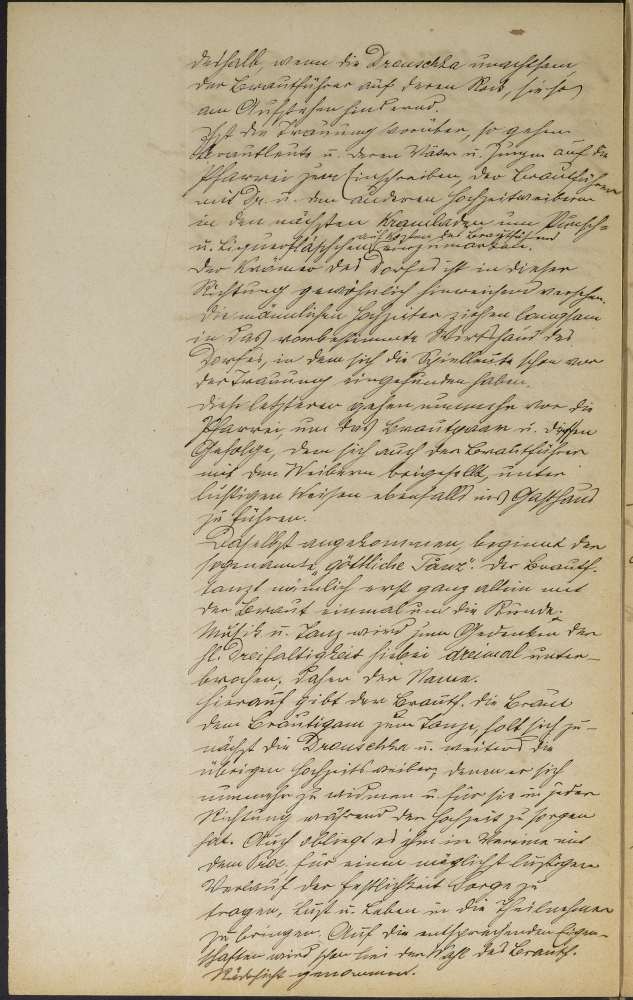 deshalb, wenn die Drouschka ungesehen
der Brautführer auf deren Rock, sie so
am Aufstehen hindernd.
Ist die Trauung vorüber, so gehen
Brautleute u. deren Väter u. Zeugen auf die
Pfarrei zum Einschreiben, der Brautführer
mit Dr. u. den anderen Hochzeitweibern
in den nächsten Kramladen um Punsch-
auf Kosten des Brautführers
u. Liqueurfläschchen einzumarkten.
Der Krämer des Dorfes ist in dieser
Richtung gewöhnlich hinreichend versehen.
Die männlichen Hochzeiter ziehen langsam
in das vorbestimmte Wirtshaus des
Dorfes, in dem sich die Spielleute schon vor
der Trauung eingefunden haben.
Diese letzteren gehen nunmehr vor die
Pfarrei, um das Brautpaar u. dessen
Gefolge, dem sich auch der Brautführer
mit den Weibern beigesellt, unter
lustigen Weisen ebenfalls ins Gasthaus
zu führen.
Daselbst angekommen, beginnt der
sogenannte „göttliche Tanz“. Der Brautf.
tanzt nämlich erst ganz allein mit
der Braut einmal um die Runde.
Musik u. Tanz wird zum Gedenken der
hl. Dreifaltigkeit hiebei dreimal unter-
brochen, daher der Name.
Hierauf gibt der Brautf. die Braut
dem Bräutigam zum Tanze, holt sich zu-
nächst die Drouschka u. weiters die
übrigen Hochzeitsweiber, denen er sich
nunmehr zu widmen u. für sie in jeder
Richtung während der Hochzeit zu sorgen
hat. Auch obliegt es ihm im Vereine mit
dem Proc. für einen möglichst lustigen
Verlauf der Festlichkeit Sorge zu
tragen, Lust u. Leben in die Theilnehmer
zu bringen. Auf die entsprechenden Eigen-
schaften wird schon bei der Wahl des Brautf.
Rücksicht genommen.